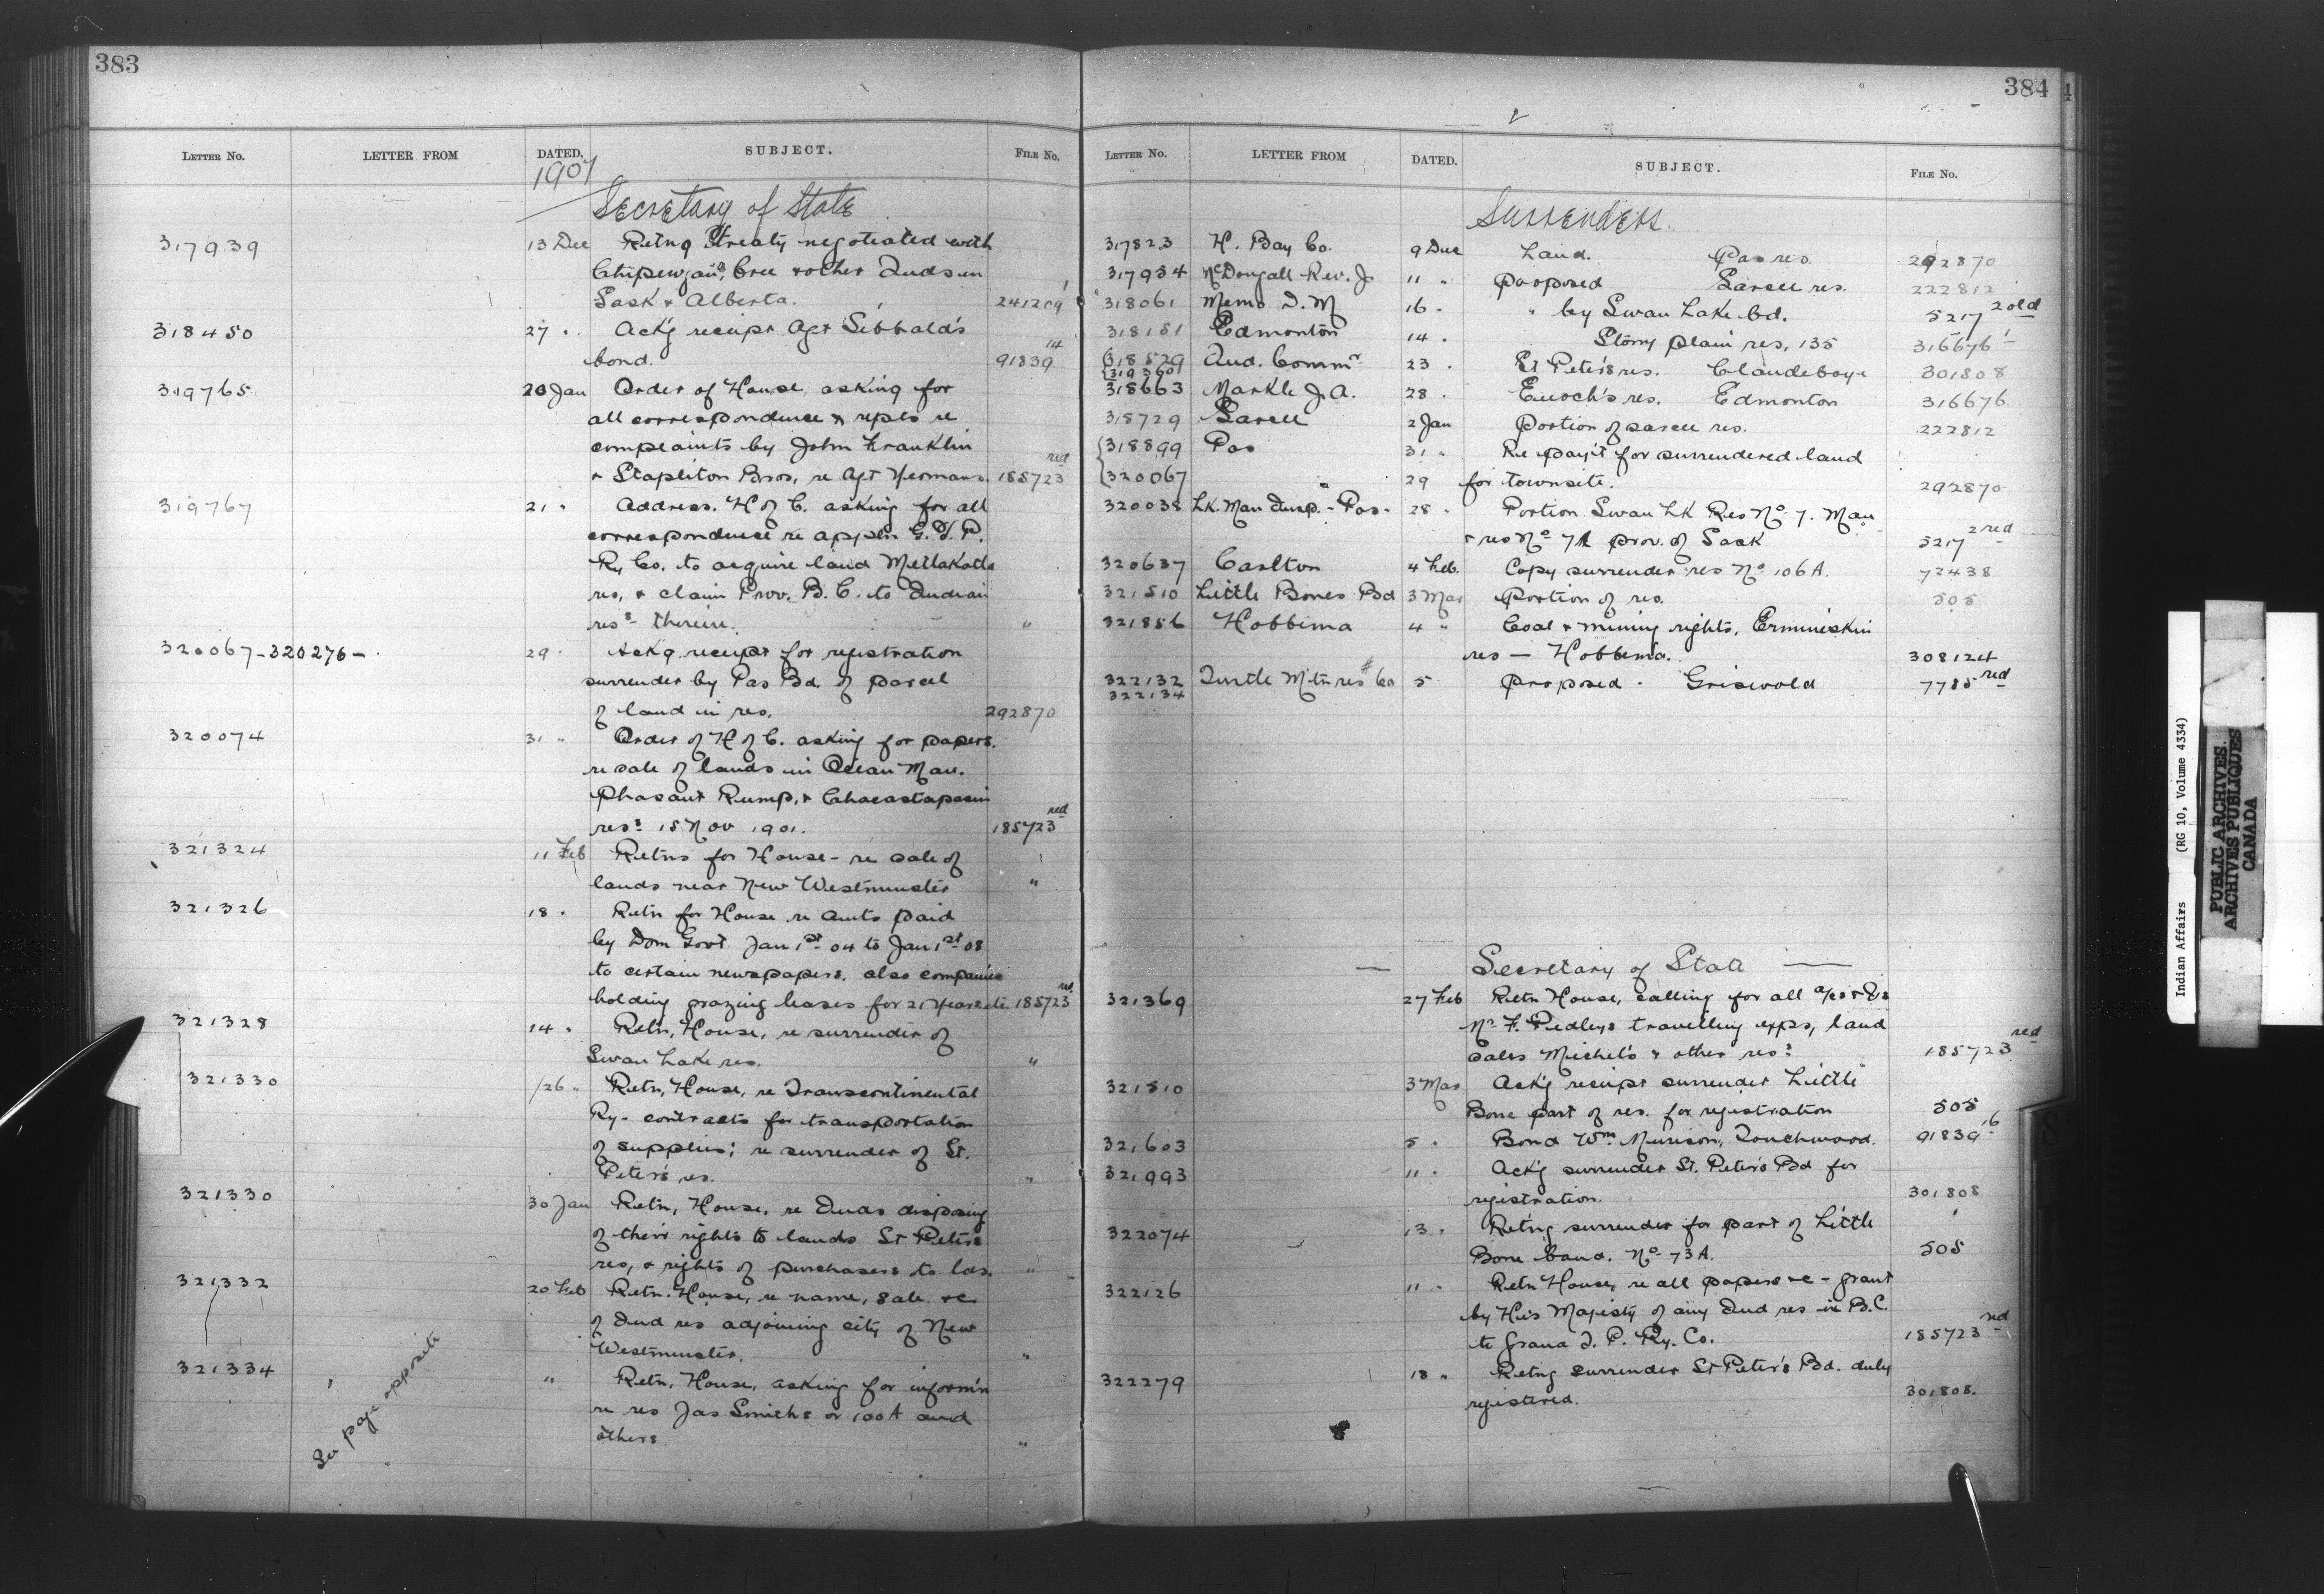 383
LETTER NO. LETTER FROM DATED. SUBJECT. FILE NO.
1907
Secretary of State
317939 13 Dec Retng Treaty negotiated with
Chipewyans, Cree & other Inds in
Sask & Alberta. 241209
318450 27 " Ack'g receipt Agt Sibbald's
bond. 91839 14
319765 20 Jan Order of House, asking for
all correspondence & repts re
complaints by John Franklin
& Stapleton Bros, re Agt Yeomans. 185723 red
319767 21 " Address. H of C. asking for all
correspondence re appl'n G.T.P.
Ry Co. to acquire land Metlakatla
res, & claim Prov. B.C. to Indian
res. therein. "
320067-320276- 29 " Ack'g receipt for registration
surrender by Pas Bd. of parcel
of land in res. 292870
320074 31 " Order of H of C. asking for papers.
re sale of lands in Ocean Man.
Phasant Rump, & Chacastapasin
ress 15 Nov 1901. 185723 red
321324 11 Feb Retns for House - re sale of
lands near New Westminster "
321326 18 " Retn for House re amts paid
by Dom Govt. Jan 1st 04 to Jan 1st 08
to certain newspapers, also companies
holding grazing leases for 21 years etc 185723 red
321328 14 " Retn, House, re surrender of
Swan Lake res. "
321330 26 " Retn, House, re Transcontinental
Ry - contracts for transportation
of supplies; re surrender of St.
Peter's res. "
321330 30 Jan Retn, House, re Inds disposing
of their rights to lands St Peters
res, & rights of purchasers to lds. "
321332 20 Feb Retn. House, re name, sale &c
of Ind res adjoining city of New
Westminster. "
321334 " Retn, House, asking for inform'n
re res Jas Smiths or 100A and
others. "
See page opposite
384
LETTER NO. LETTER FROM DATED. SUBJECT. FILE NO.
Surrenders.
317823 H. Bay Co. 9 Dec Land. Pas res. 292870
317934 McDougall Rev. J 11 " Proposed Sarcee res. 222812
318061 Memo D. M 16 " " by Swan Lake bd. 5217 2 old
318151 Edmonton 14 " Stony plain res, 135 316676 1
318529 Ind. Commr 23 " St Peters res. Claudeboye 301808
319360
318663 Markle J. A. 28 " Enoch's res. Edmonton 316676
318729 Sarcee 2 Jan Portion of sarcee res. 222812
318899 Pas 31 " Re pay't for surrendered land
320067 " 29 for townsite. 292870
320038 Lk. Man Insp. - Pas - 28 " Portion Swan Lk Res No 7. Man
& res No 7A prov. of Sask 5217 2 red
320637 Carlton 4 Feb. Copy surrender res No 106A. 72438
321510 Little Bones Bd 3 Mar Portion of res. 505
321856 Hobbema 4 " Coal & mining rights, Ermineskin
res - Hobbema. 308124
322132 Turtle Mtn res # 60 5 Proposed - Griswold 7785 red
322134
— Secretary of State —
321369 27 Feb Retn House, calling for all a/cs &
Mr F. Pedleys travelling exps, land
sales Michel's & other ress 185723 red
321510 3 Mar Ack'g receipt surrender Little
Bone part of res. for registration 505
321603 5 " Bond Wm Murison, Touchwood. 91839 16
321993 11 " Ack'g surrender St. Peter's Bd for
registration. 301808
322074 13 " Ret'ng surrender for part of Little
Bone band. No 73A. 505
322126 11 " Retn House, re all papers &c - grant
by His Majesty of any Ind res in B.C.
to Grand T. P. Ry. Co. 185723 red
322279 18 " Retng surrender St Peter's Bd. duly
registered. 301808.
Indian Affairs (RG 10, Volume 4334)
PUBLIC ARCHIVES
ARCHIVES PUBLIQUES
CANADA